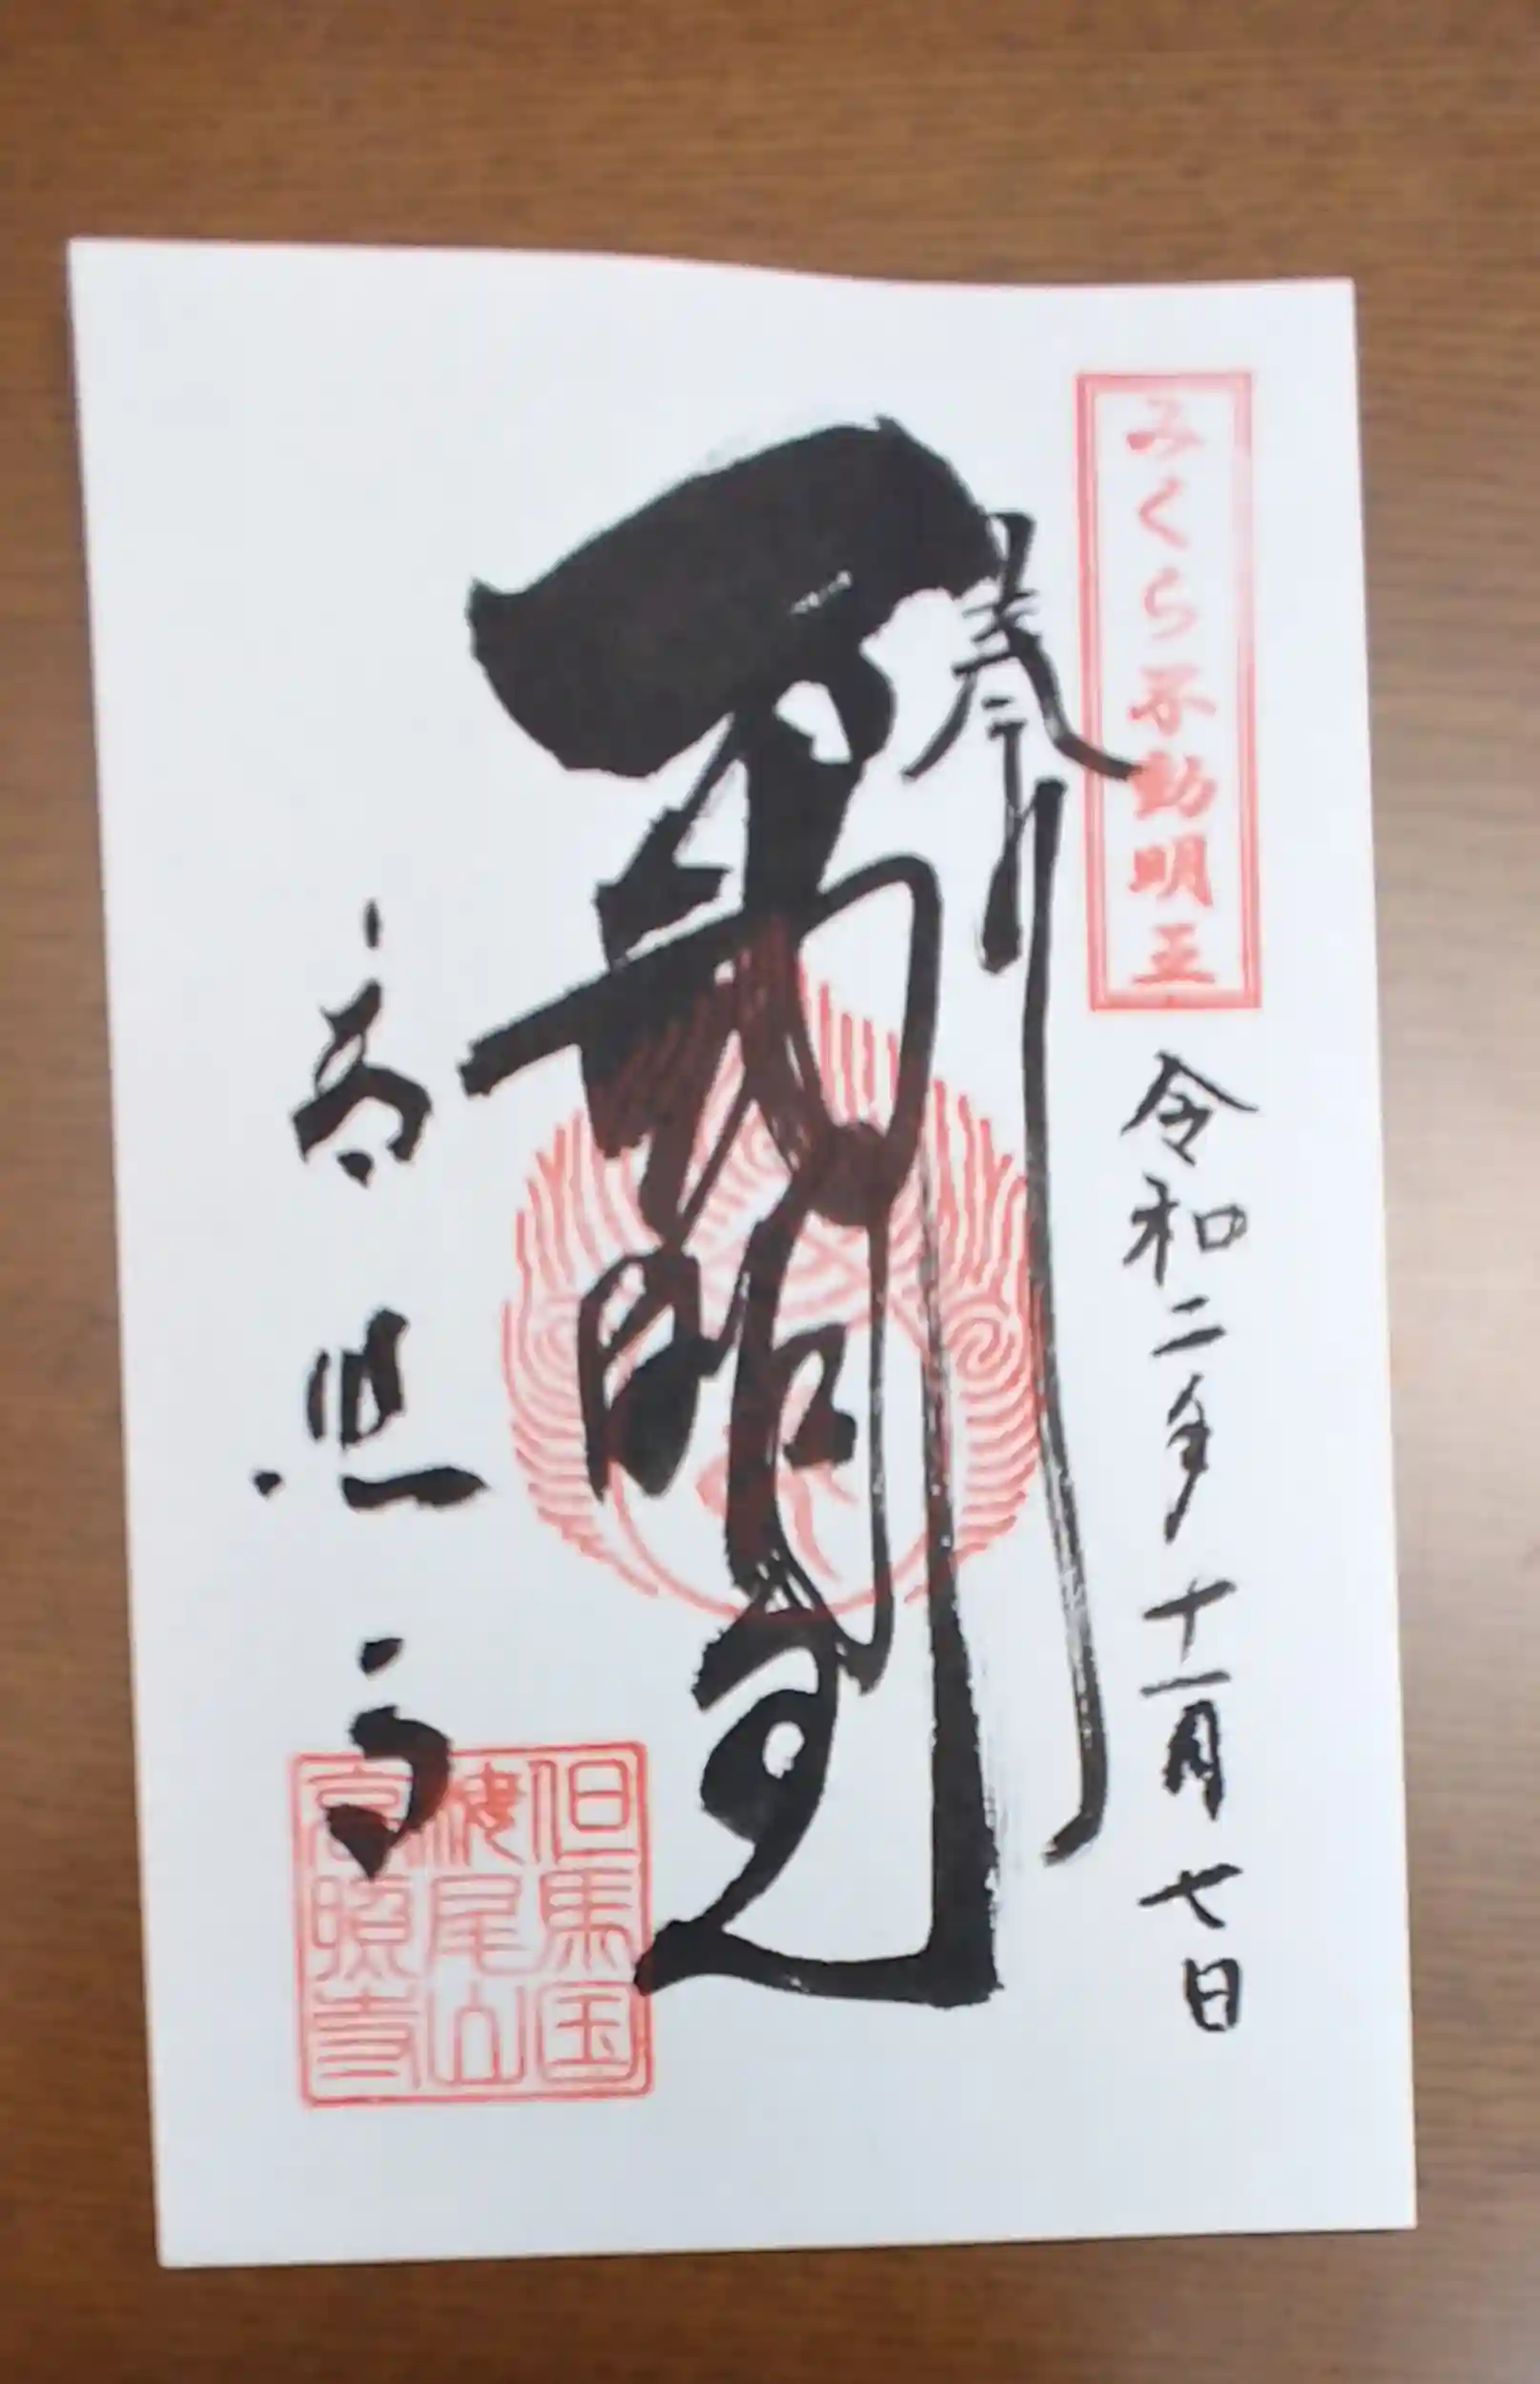 みくら不動明王
令和二年十一月七日
奉拝
不動明王
高照寺
但馬国
棲尾山
高照寺